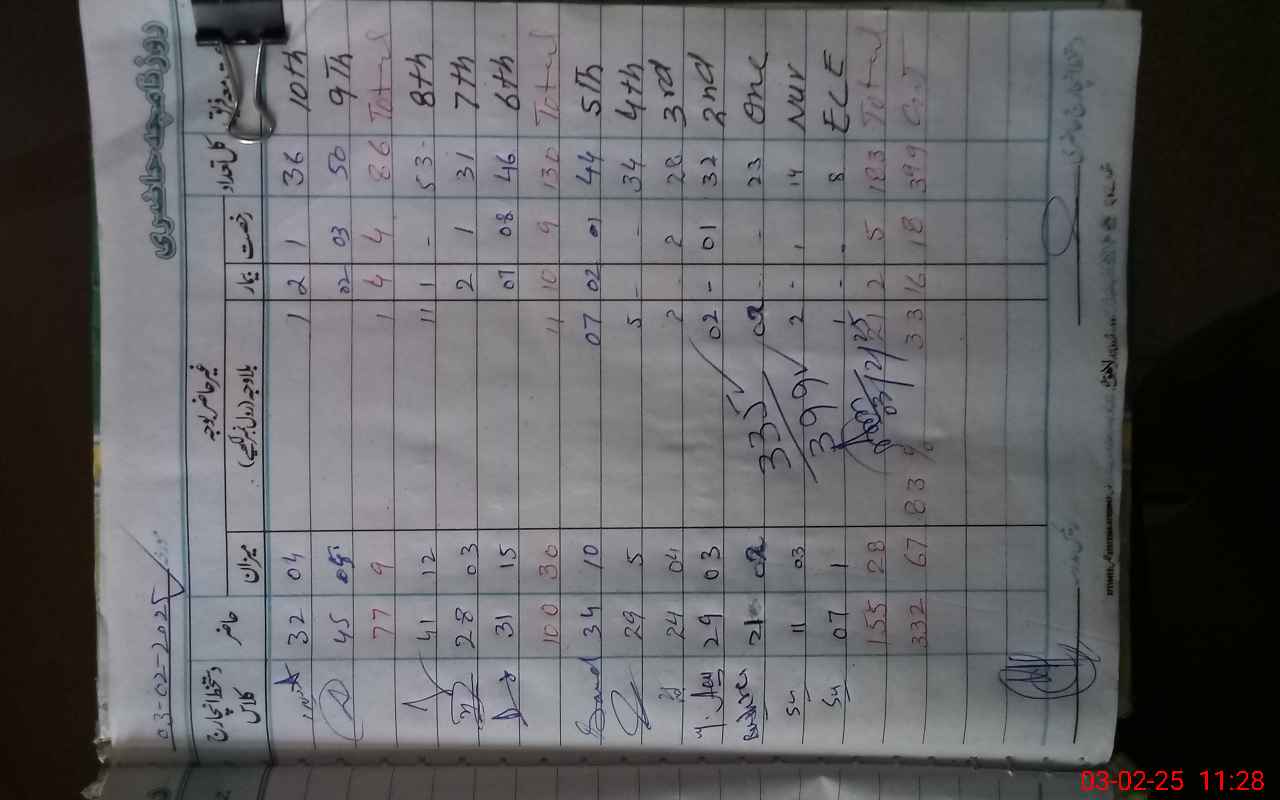 روزنامچہ حاضری
03-02-2025
کل تعداد رخصت بیمار غیر حاضر بوجہ بلاوجہ (رول نمبر لکھیے) میزان حاضر دستخط انچارج کلاس
10th 36 1 2 1 04 32
9Th 50 03 02 05 45
Total 86 4 4 1 9 77
8th 53 - 1 11 12 41
7th 31 1 2 03 28
6th 46 08 07 15 31
Total 130 9 10 11 30 100
5Th 44 01 02 07 10 34
4th 34 - - 5 5 29
3rd 28 2 - 2 04 24
2nd 32 01 - 02 03 29
One 23 - - 02 02 21
Nur 14 1 - 2 03 11
ECE 8 - - 1 1 07
Total 183 5 2 21 28 155
G.T 399 18 16 33 83% 67 332
335
399
03/2/25
03-02-25 11:28